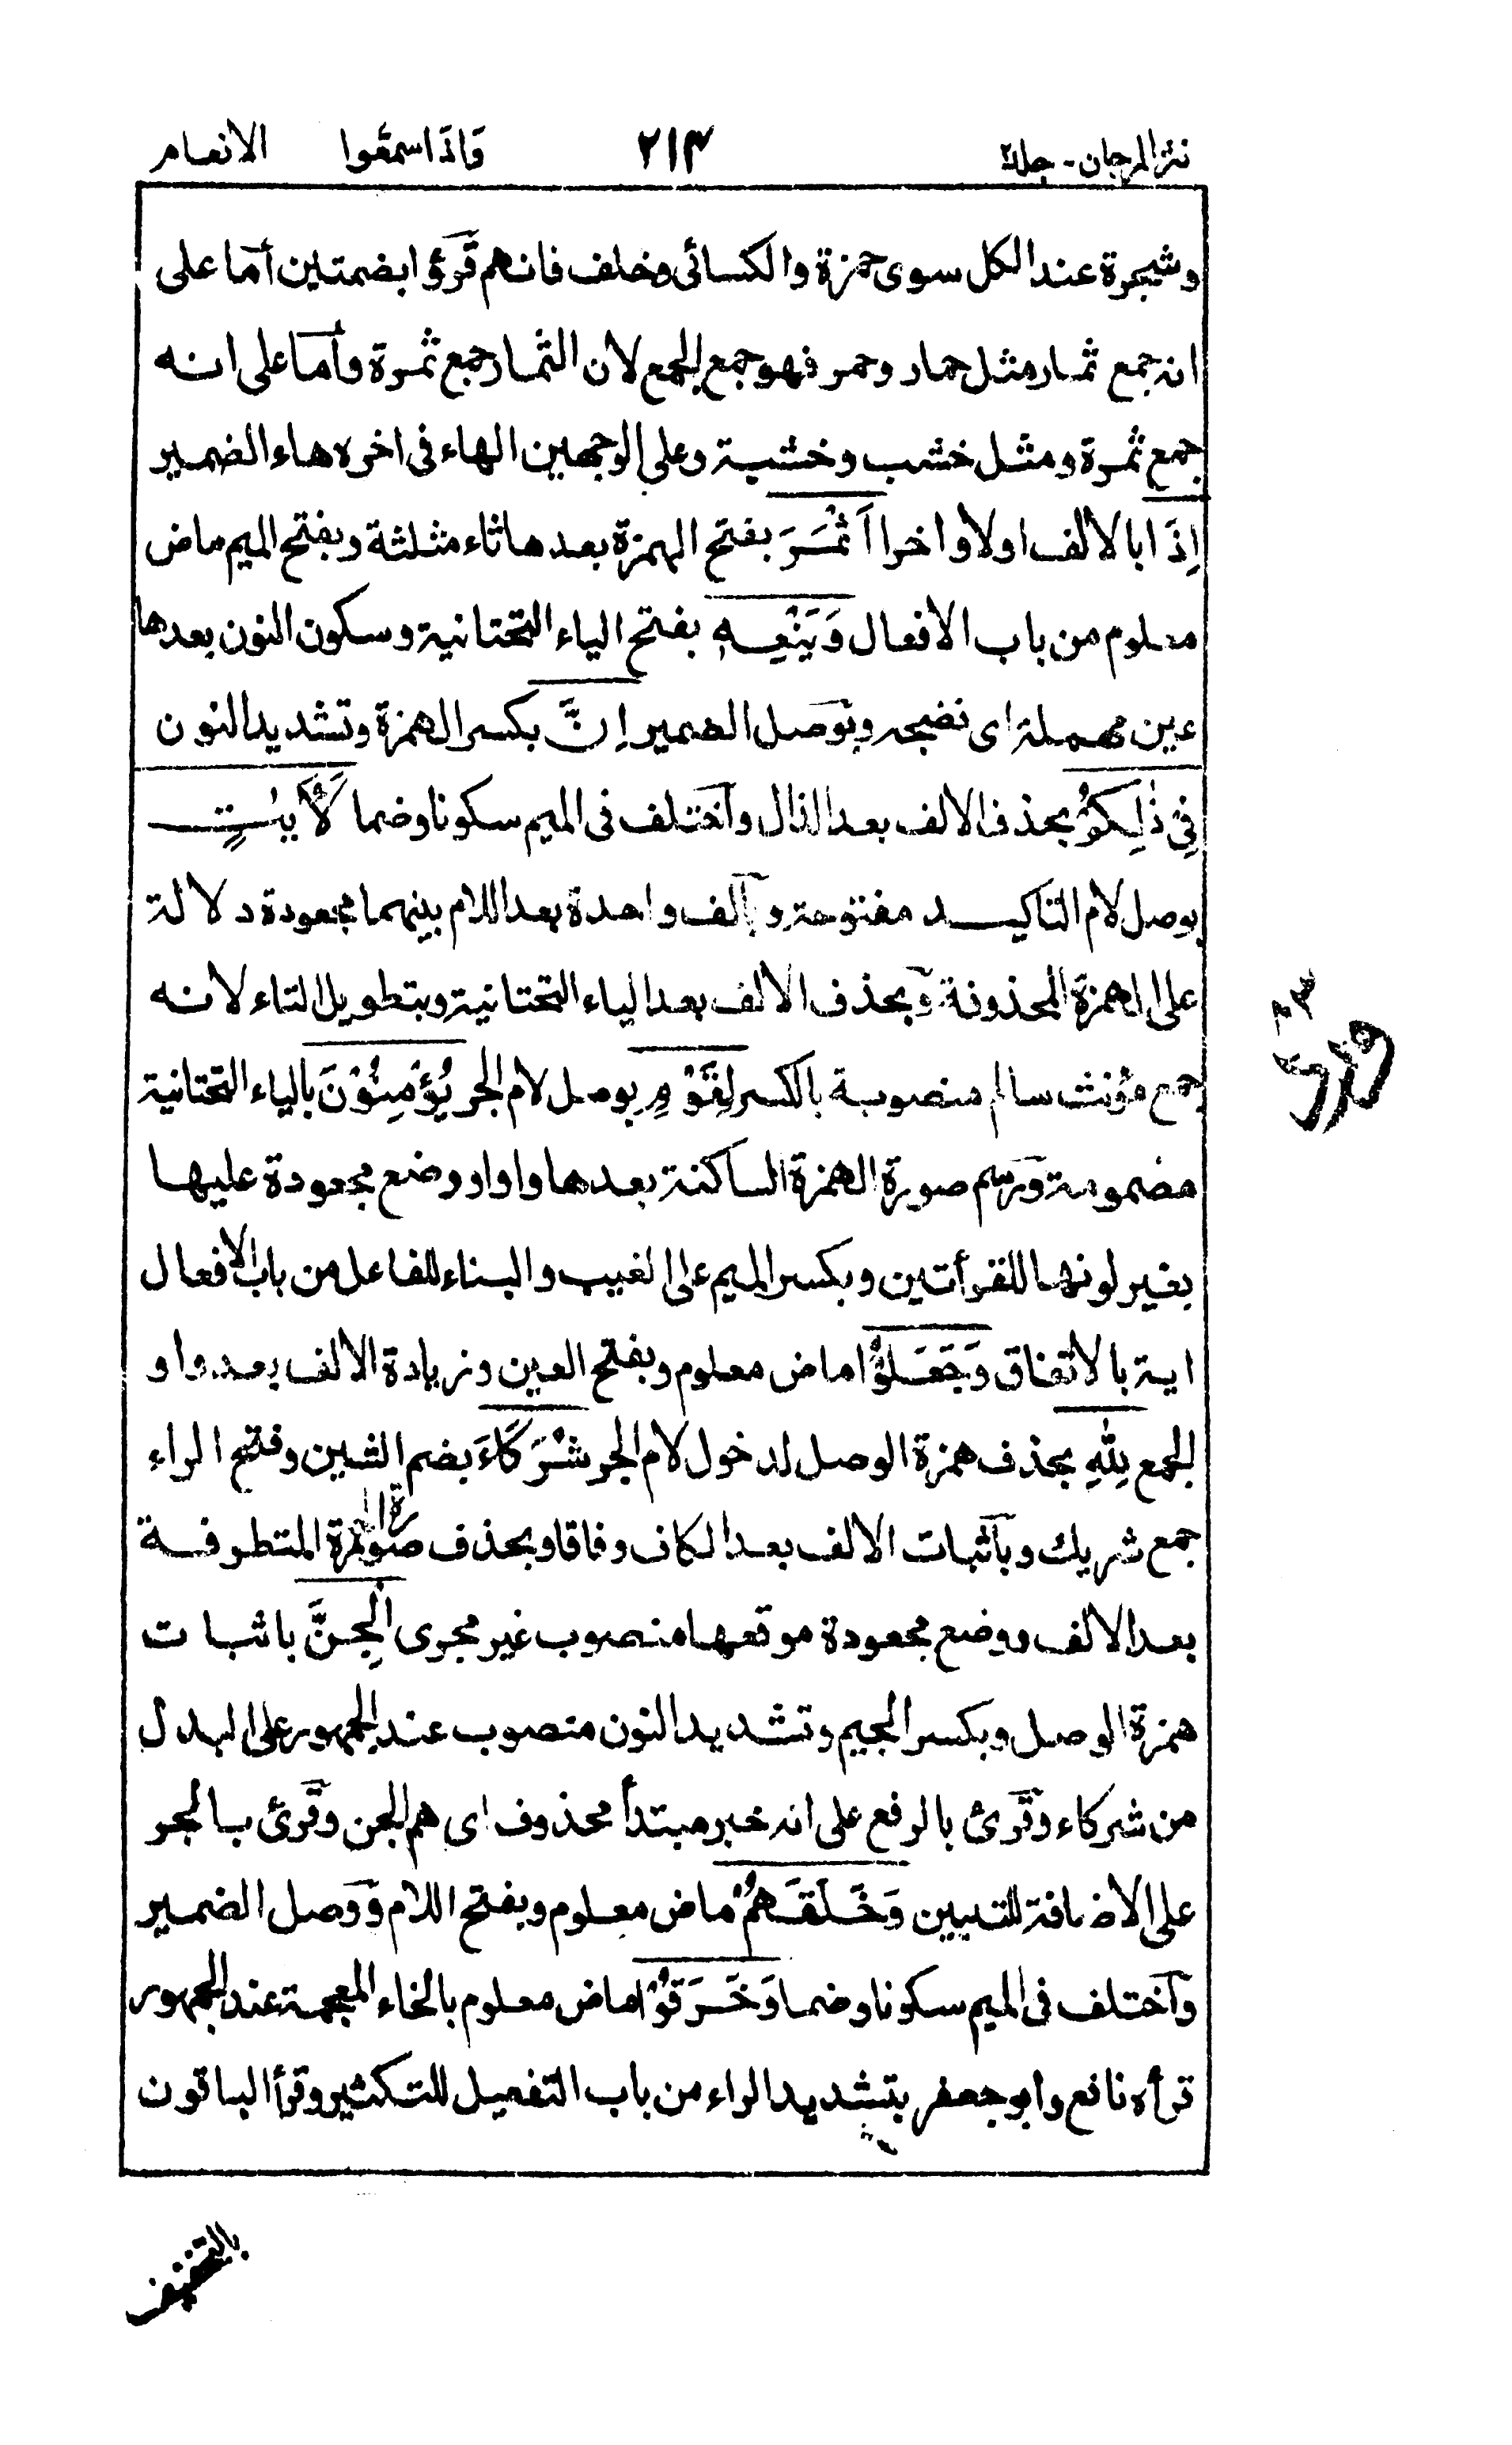 نثر المرجان - جلد٢ ٢١٣ وَاذَا سمعُوا الانعام
وشجرة عند الكل سوى حمزة والكسائى وخلف فانهم قرؤا بضمتين أما على
انه جمع ثمار مثل حمار وحمر فهو جمع الجمع لان الثمار جمع ثمرة وأما على انه
جمع ثمرة ومثل خشب وخشبة وعلى الوجهين الهاء فى اخره هاء الضمير
إِذَا بالالف اولا واخرا أَثْمَرَ بفتح الهمزة بعدها ثاء مثلثة وبفتح الميم ماض
معلوم من باب الافعال وَيَنْعِهِ بفتح الياء التحتانية وسكون النون بعدها
عين مهملة اى نضيجه وبوصل الضمير اِنَّ بكسر الهمزة وتشديد النون
فِي ذٰلِكُمْ بحذف الالف بعد الذال واختلف فى الميم سكونا وضما لَأٰيٰتٍ
بوصل لام التاكيد مفتوحة وبالف واحدة بعد اللام بينهما مجعودة دلالة
على الهمزة المحذوفة وبحذف الالف بعد الياء التحتانية وبتطويل التاء لانه
جمع مؤنث سالم منصوبة بالكسر لِقَوْمٍ بوصل لام الجر يُؤْمِنُوْنَ بالياء التحتانية
مضمومة ورسم صورة الهمزة الساكنة بعدها واوا ووضع مجعودة عليها
بغير لونها للقرأتين وبكسر الميم على الغيب والبناء للفاعل من باب الافعال
اية بالاتفاق وَجَعَلُوْا ماض معلوم وبفتح العين وزيادة الالف بعد واو
الجمع لِلّٰهِ بحذف همزة الوصل لدخول لام الجر شُرَكَاءَ بضم الشين وفتح الراء
جمع شريك وباثبات الالف بعد الكاف وفاقا وبحذف صورة الهمزة المتطرفة
بعد الالف ووضع مجعودة موقعها منصوب غير مجرى الْجِنَّ باثبات
همزة الوصل وبكسر الجيم وتشديد النون منصوب عند الجمهور على البدل
من شركاء وقرئ بالرفع على انه خبر مبتدأ محذوف اى هم الجن وقرئ بالجر
على الاضافة للتبيين وَخَلَقَهُمْ ماض معلوم وبفتح اللام ووصل الضمير
واختلف فى الميم سكونا وضما وَخَرَقُوْا ماض معلوم بالخاء المعجمة عند الجمهور
قرأه نافع وابو جعفر بتشديد الراء من باب التفعيل للتكثير وقرأ الباقون
بالتخفيف